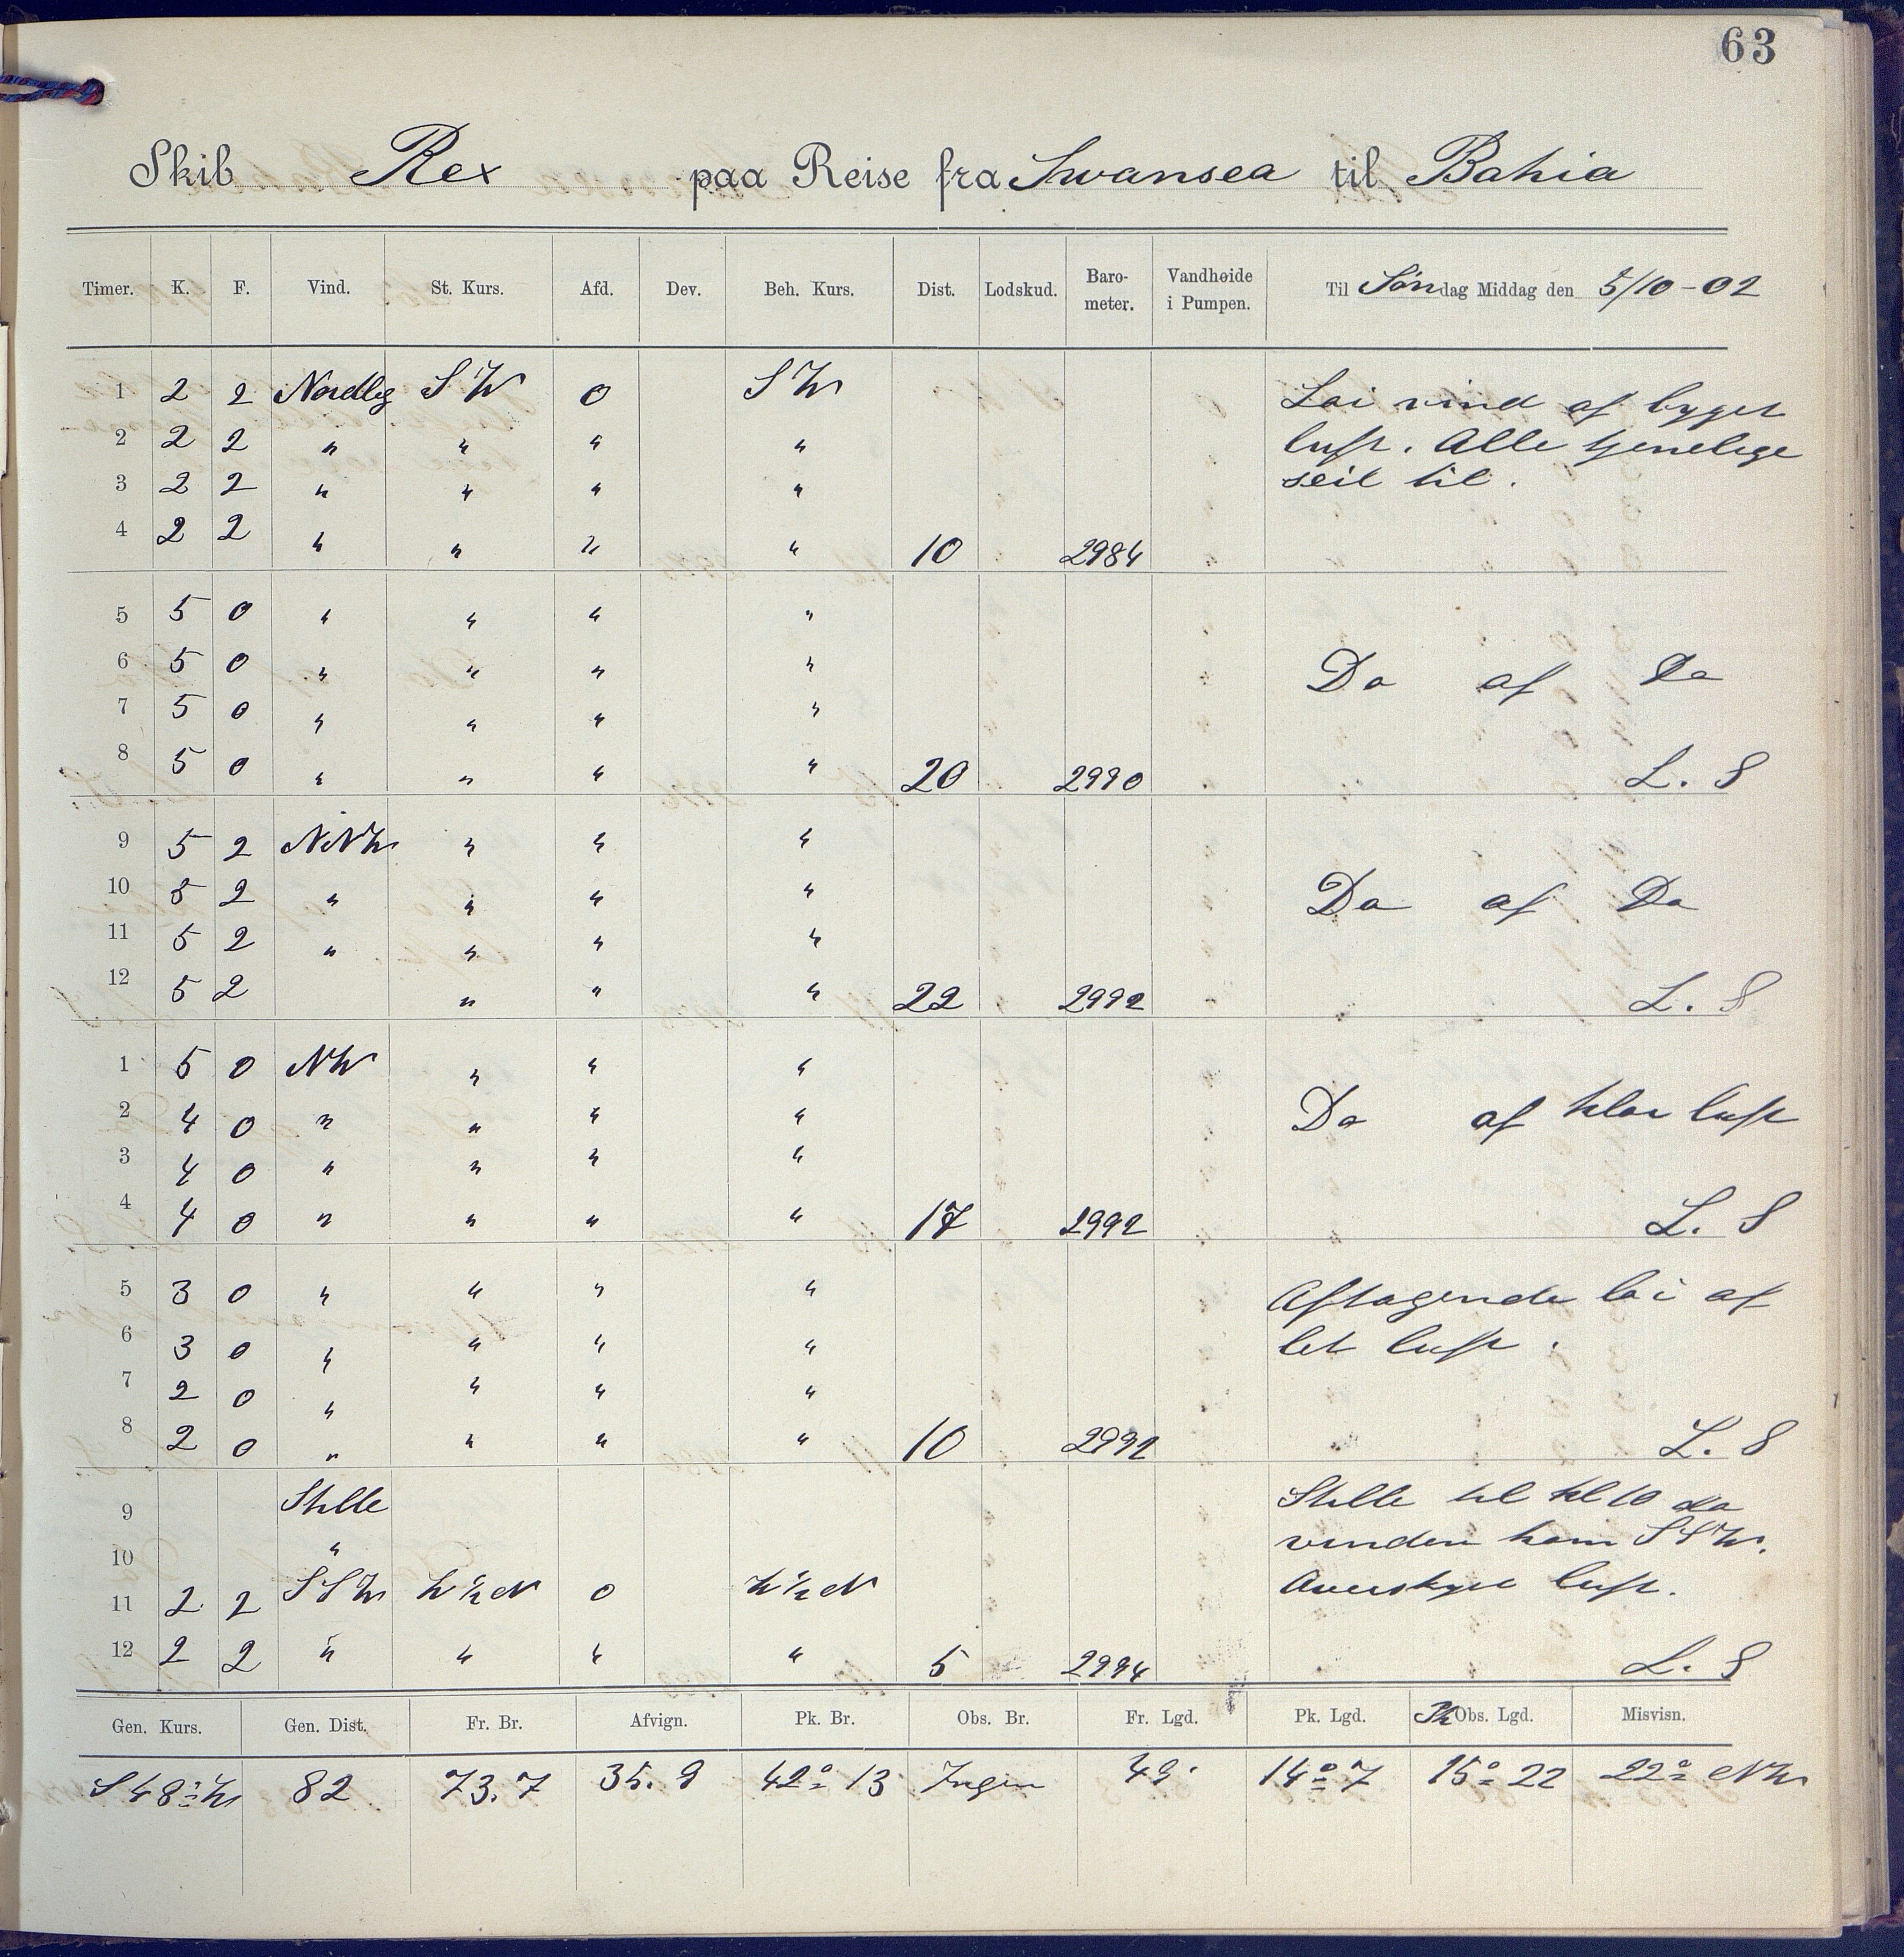 63
Skib Rex paa Reise fra Swansea til Bahia
Timer. K. F. Vind. St. Kurs. Afd. Dev. Beh. Kurs. Dist. Lodskud. Baro-meter. Vandhøide i Pumpen. Til Søndag Middag den 5/10-02
1 2 2 Nordlig SW 0 SW Lai vind af byget
2 2 2 " " " " luft. Alle tjenelige
3 2 2 " " " " seil til.
4 2 2 " " " " 10 2984
5 5 0 " " " "
6 5 0 " " " " Do af Do
7 5 0 " " " "
8 5 0 " " " " 20 2990 L. S
9 5 2 NNW " " "
10 5 2 " " " " Do af Do
11 5 2 " " " "
12 5 2 " " " 22 2992 L. S
1 5 0 NW " " "
2 4 0 " " " " Do af klar luft
3 4 0 " " " "
4 4 0 " " " " 17 2992 L. S
5 3 0 " " " " Aftagende lai af
6 3 0 " " " " let luft.
7 2 0 " " " "
8 2 0 " " " " 10 2992 L. S
9 Stille Stille til kl 10 da
10 " vinden kom SSW.
11 2 2 SSW W½N 0 W½N Averskyet luft.
12 2 2 " " " " 5 2994 L. S
Gen. Kurs. Gen. Dist. Fr. Br. Afvign. Pk. Br. Obs. Br. Fr. Lgd. Pk. Lgd. Obs. Lgd. Misvisn.
S 48° W 82 73.7 35.9 42° 13 Ingen 49' 14° 7 15° 22 22° NW